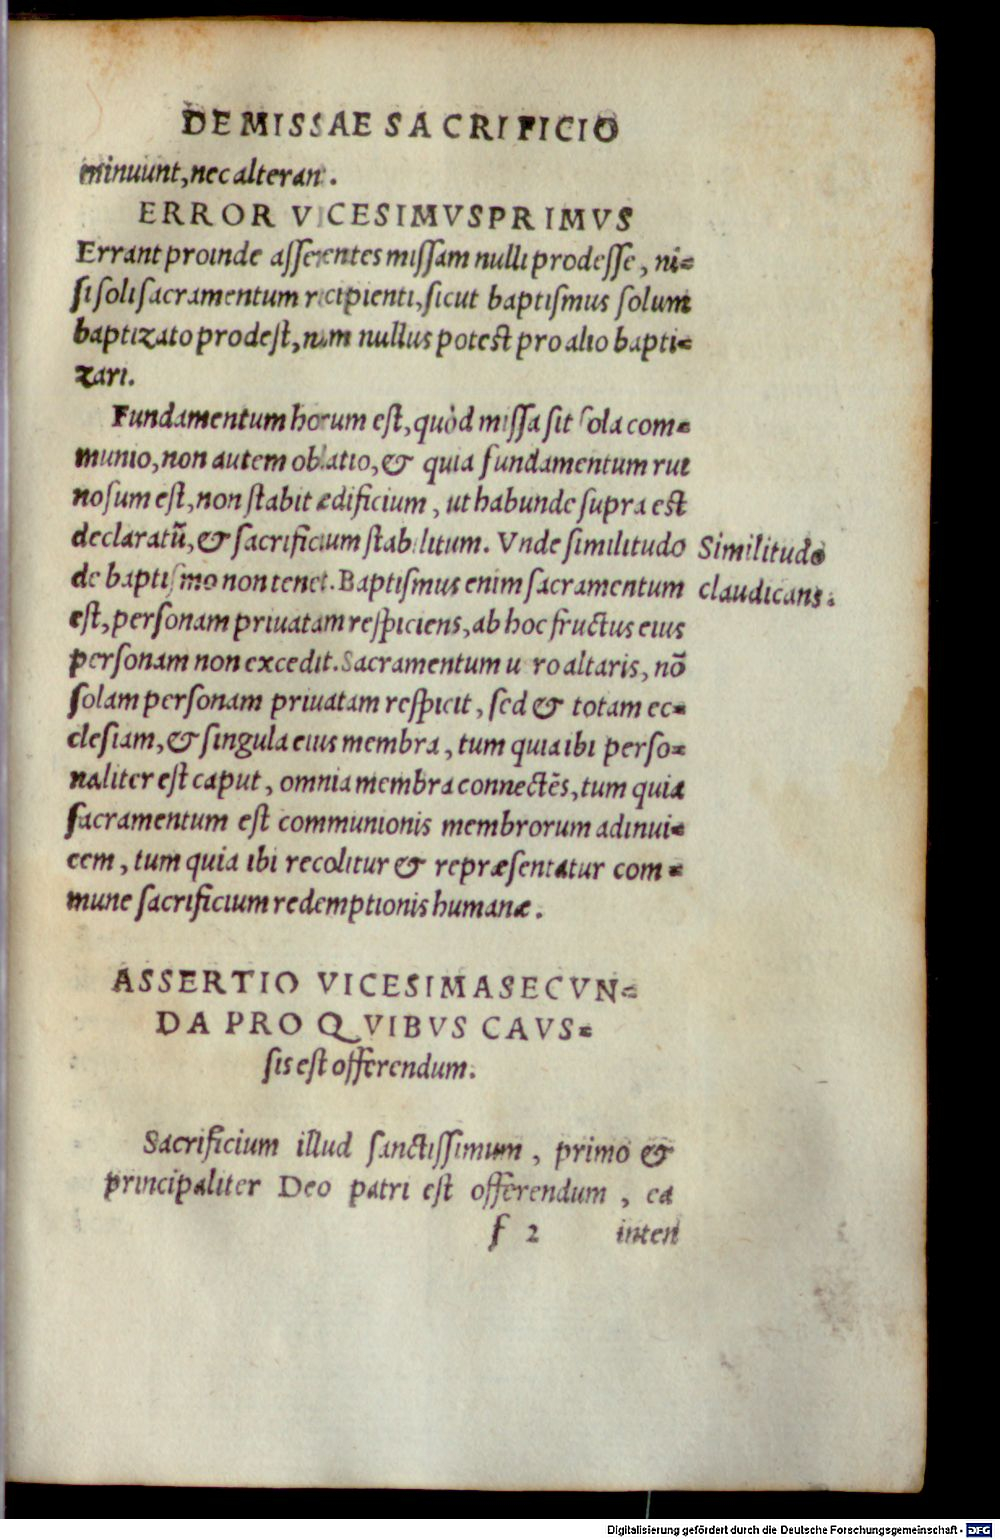 DE MISSAE SACRIFICIO
minuunt, nec alteran.
ERROR VICESIMVSPRIMVS
Errant proinde asserentes missam nulli prodesse, ni=
si soli sacramentum recipienti, sicut baptismus solum
baptizato prodest, nam nullus potest pro alio bapti=
zari.
Fundamentum horum est, quòd missa sit sola com=
munio, non autem oblatio, & quia fundamentum rui
nosum est, non stabit ædificium, ut habunde supra est
declaratũ, & sacrificium stabilitum. Vnde similitudo
Similitudo
de baptismo non tenet. Baptismus enim sacramentum
claudicans.
est, personam priuatam respiciens, ab hoc fructus eius
personam non excedit. Sacramentum u ro altaris, nõ
solam personam priuatam respicit, sed & totam ec=
clesiam, & singula eius membra, tum quia ibi perso=
naliter est caput, omnia membra connectẽs, tum quia
sacramentum est communionis membrorum adinui=
cem, tum quia ibi recolitur & repræsentatur com=
mune sacrificium redemptionis humanæ.
ASSERTIO VICESIMASECVN=
DA PRO QVIBVS CAVS=
sis est offerendum.
Sacrificium illud sanctissimum, primo &
principaliter Deo patri est offerendum, ea
f 2 inten
Digitalisierung gefördert durch die Deutsche Forschungsgemeinschaft - DFG